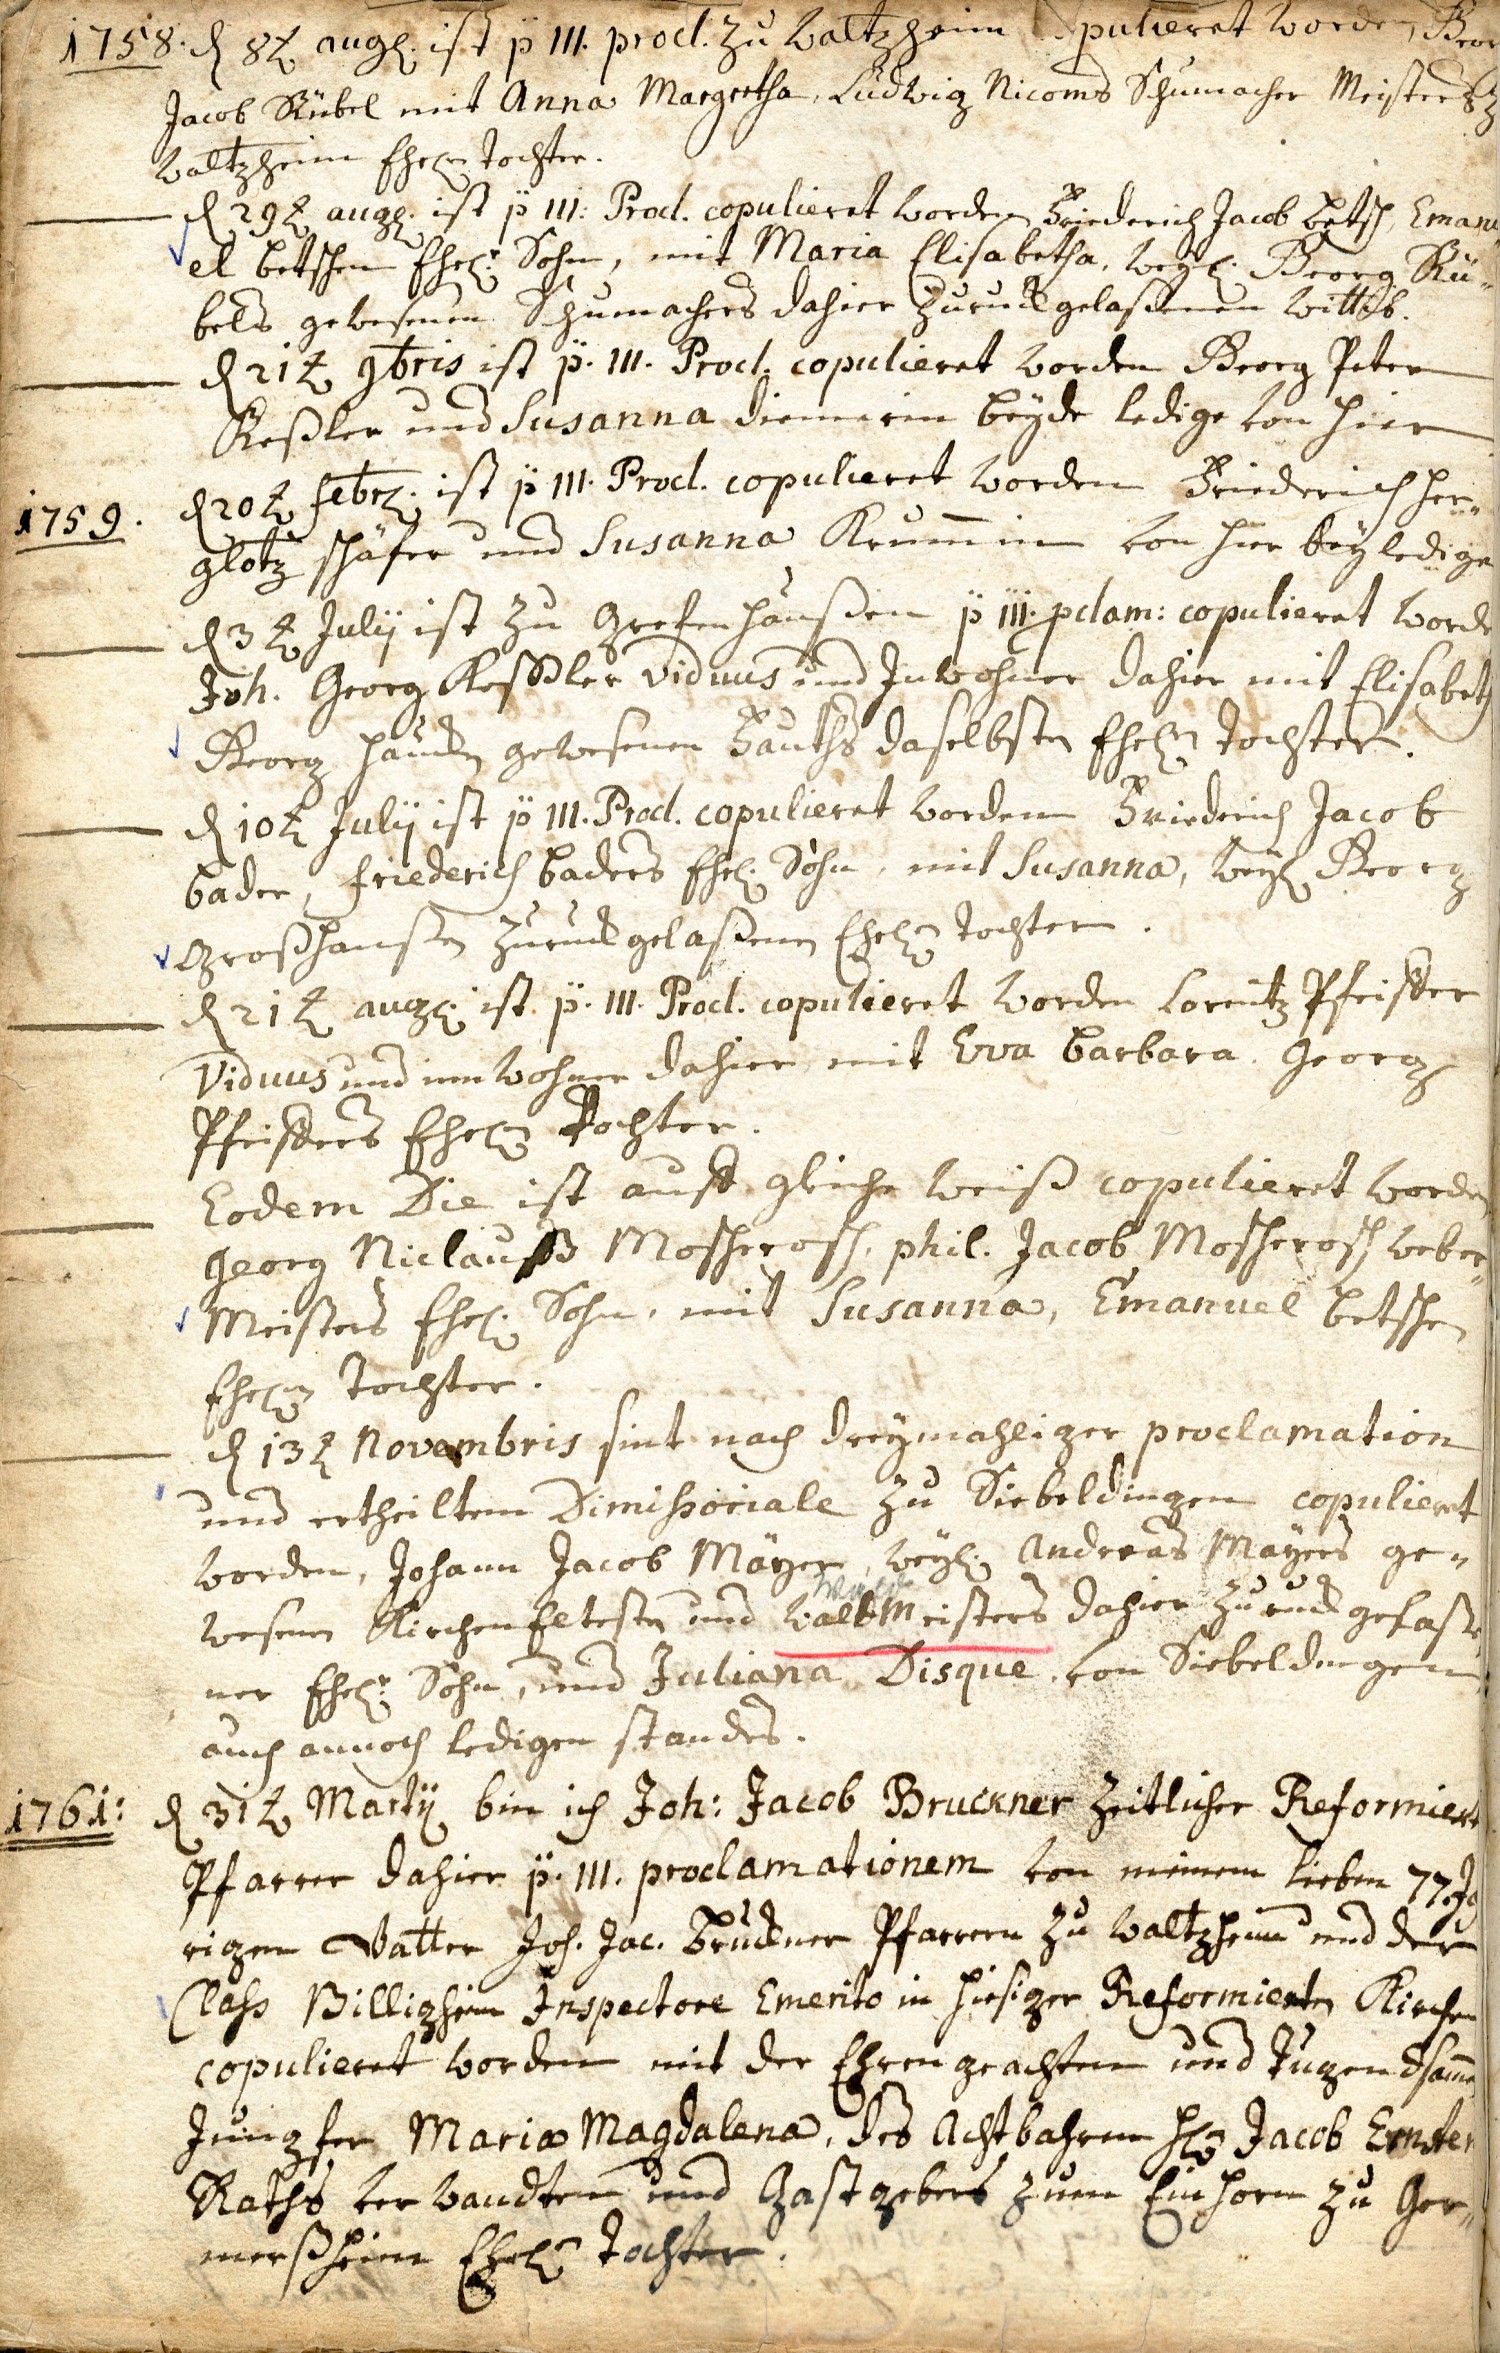 1758. d 8t. aug. ist p III. procl. zu Waltzheim pulieret worden, Geor
Jacob Rübel mit Anna Margretha, Ludwig Nicoms Schumacher Meisters z
Waltzheim Ehel. Tochter.
d 29t. aug. ist p III. Procl. copulieret worden Friederich Jacob betsch, Emanu
el betschen Ehel. Sohn, mit Maria Elisabetha, weyl. Georg Rü-
bels gewesenen Schumachers dahier zuruckgelaßenen wittib.
d 21t. 9bris ist p. III. Procl. copulieret worden Georg Peter
Keßler und Susanna diemerin beyde ledige von hier
1759. d 20t. febr. ist p III. Procl. copulieret worden Friederich her-
glotz schäfer und Susanna Krummin von hier bey ledige
d 3t. Julij ist zu Grefenhaußen p III. pclam: copulieret worde
Joh. Georg Keßler viduus und Inwohner dahier mit Elisabeth
Georg haucks gewesenen Fauths daselbsten Ehel. Tochter.
d 10t. Julij ist p III. Procl. copulieret worden Friederich Jacob
bader, friederich baders Ehel. Sohn, mit Susanna, weyl. Georg
Großhansen zuruckgelaßenen Ehel. Tochter.
d 21t. aug. ist p. III. Procl. copulieret worden Lorentz Pfeiffer
viduus und innwohner dahier mit Eva barbara. Georg
Pfeiffers Ehel. Tochter.
Eodem Die ist auff gleiche weiß copulieret worden
Georg Niclauß Moscherosch, phil. Jacob Moscherosch weber-
Meisters Ehel. Sohn, mit Susanna, Emanuel betschen
Ehel. Tochter.
d 13t. Novembris sint nach dreymahliger proclamation
und ertheiltem Dimissoriale zu Siebeldingen copulieret
worden, Johann Jacob Mäyer, weyl. Andreas Mäyers ge-
wesenen KirchenEltesten und waltMeisters dahier zuruckgelaße
ner Ehel. Sohn, und Juliana Disque von Siebeldingen
auch annoch ledigen standes.
1761: d 31t. Martij bin ich Joh: Jacob Bruckner zeitlicher Reformiert
Pfarrer dahier p. III. proclamationem von meinem lieben 77.Jä
rigen Vatter Joh. Jac. Bruckner Pfarrern zu Waltzheim und der
Class Billigheim Inspectore Emerito in hiesiger Reformierten Kirchen
copulieret worden mit der Ehrengeachten und Tugendsamen
Jungfer Maria Magdalena, des Achtbahren H. Jacob Ernsten
Raths verwandten und Gastgebers zum Einhorn zu Ger-
merßheim Ehel. Tochter.